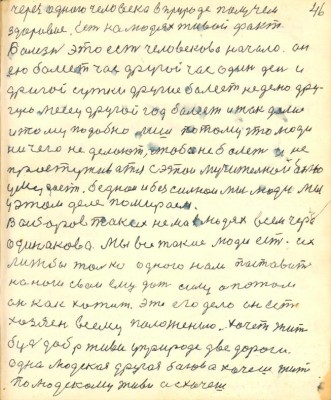 46
через одного человека в природе получен
здоровие, ест на людях живой факт.
Болезн это ест человеково начало. он
ею болеет час другой час один ден и
другой сутки другие болеет неделю дру-
гую месец другой год болеет и так далие
и тому подобно мы потому что люди
ничего не делают, чтобы не болет и не
простуживатся с этой мучителной болю
умерает. бедная и безсилная мы люди мы
у этом деле помираем.
Выборов таких нема в людях всем через
одинакова. мы все такие люди ест. их
лишбы толко одного нам поставит
на ноги свои ему дат силу а потом
он как хочит. Это его дело он ест
хозяен всему положению. хочет жит
буд добр живи у природе две дороги.
одна людская другая багова хочеш жит
По людскому живи а схочеш